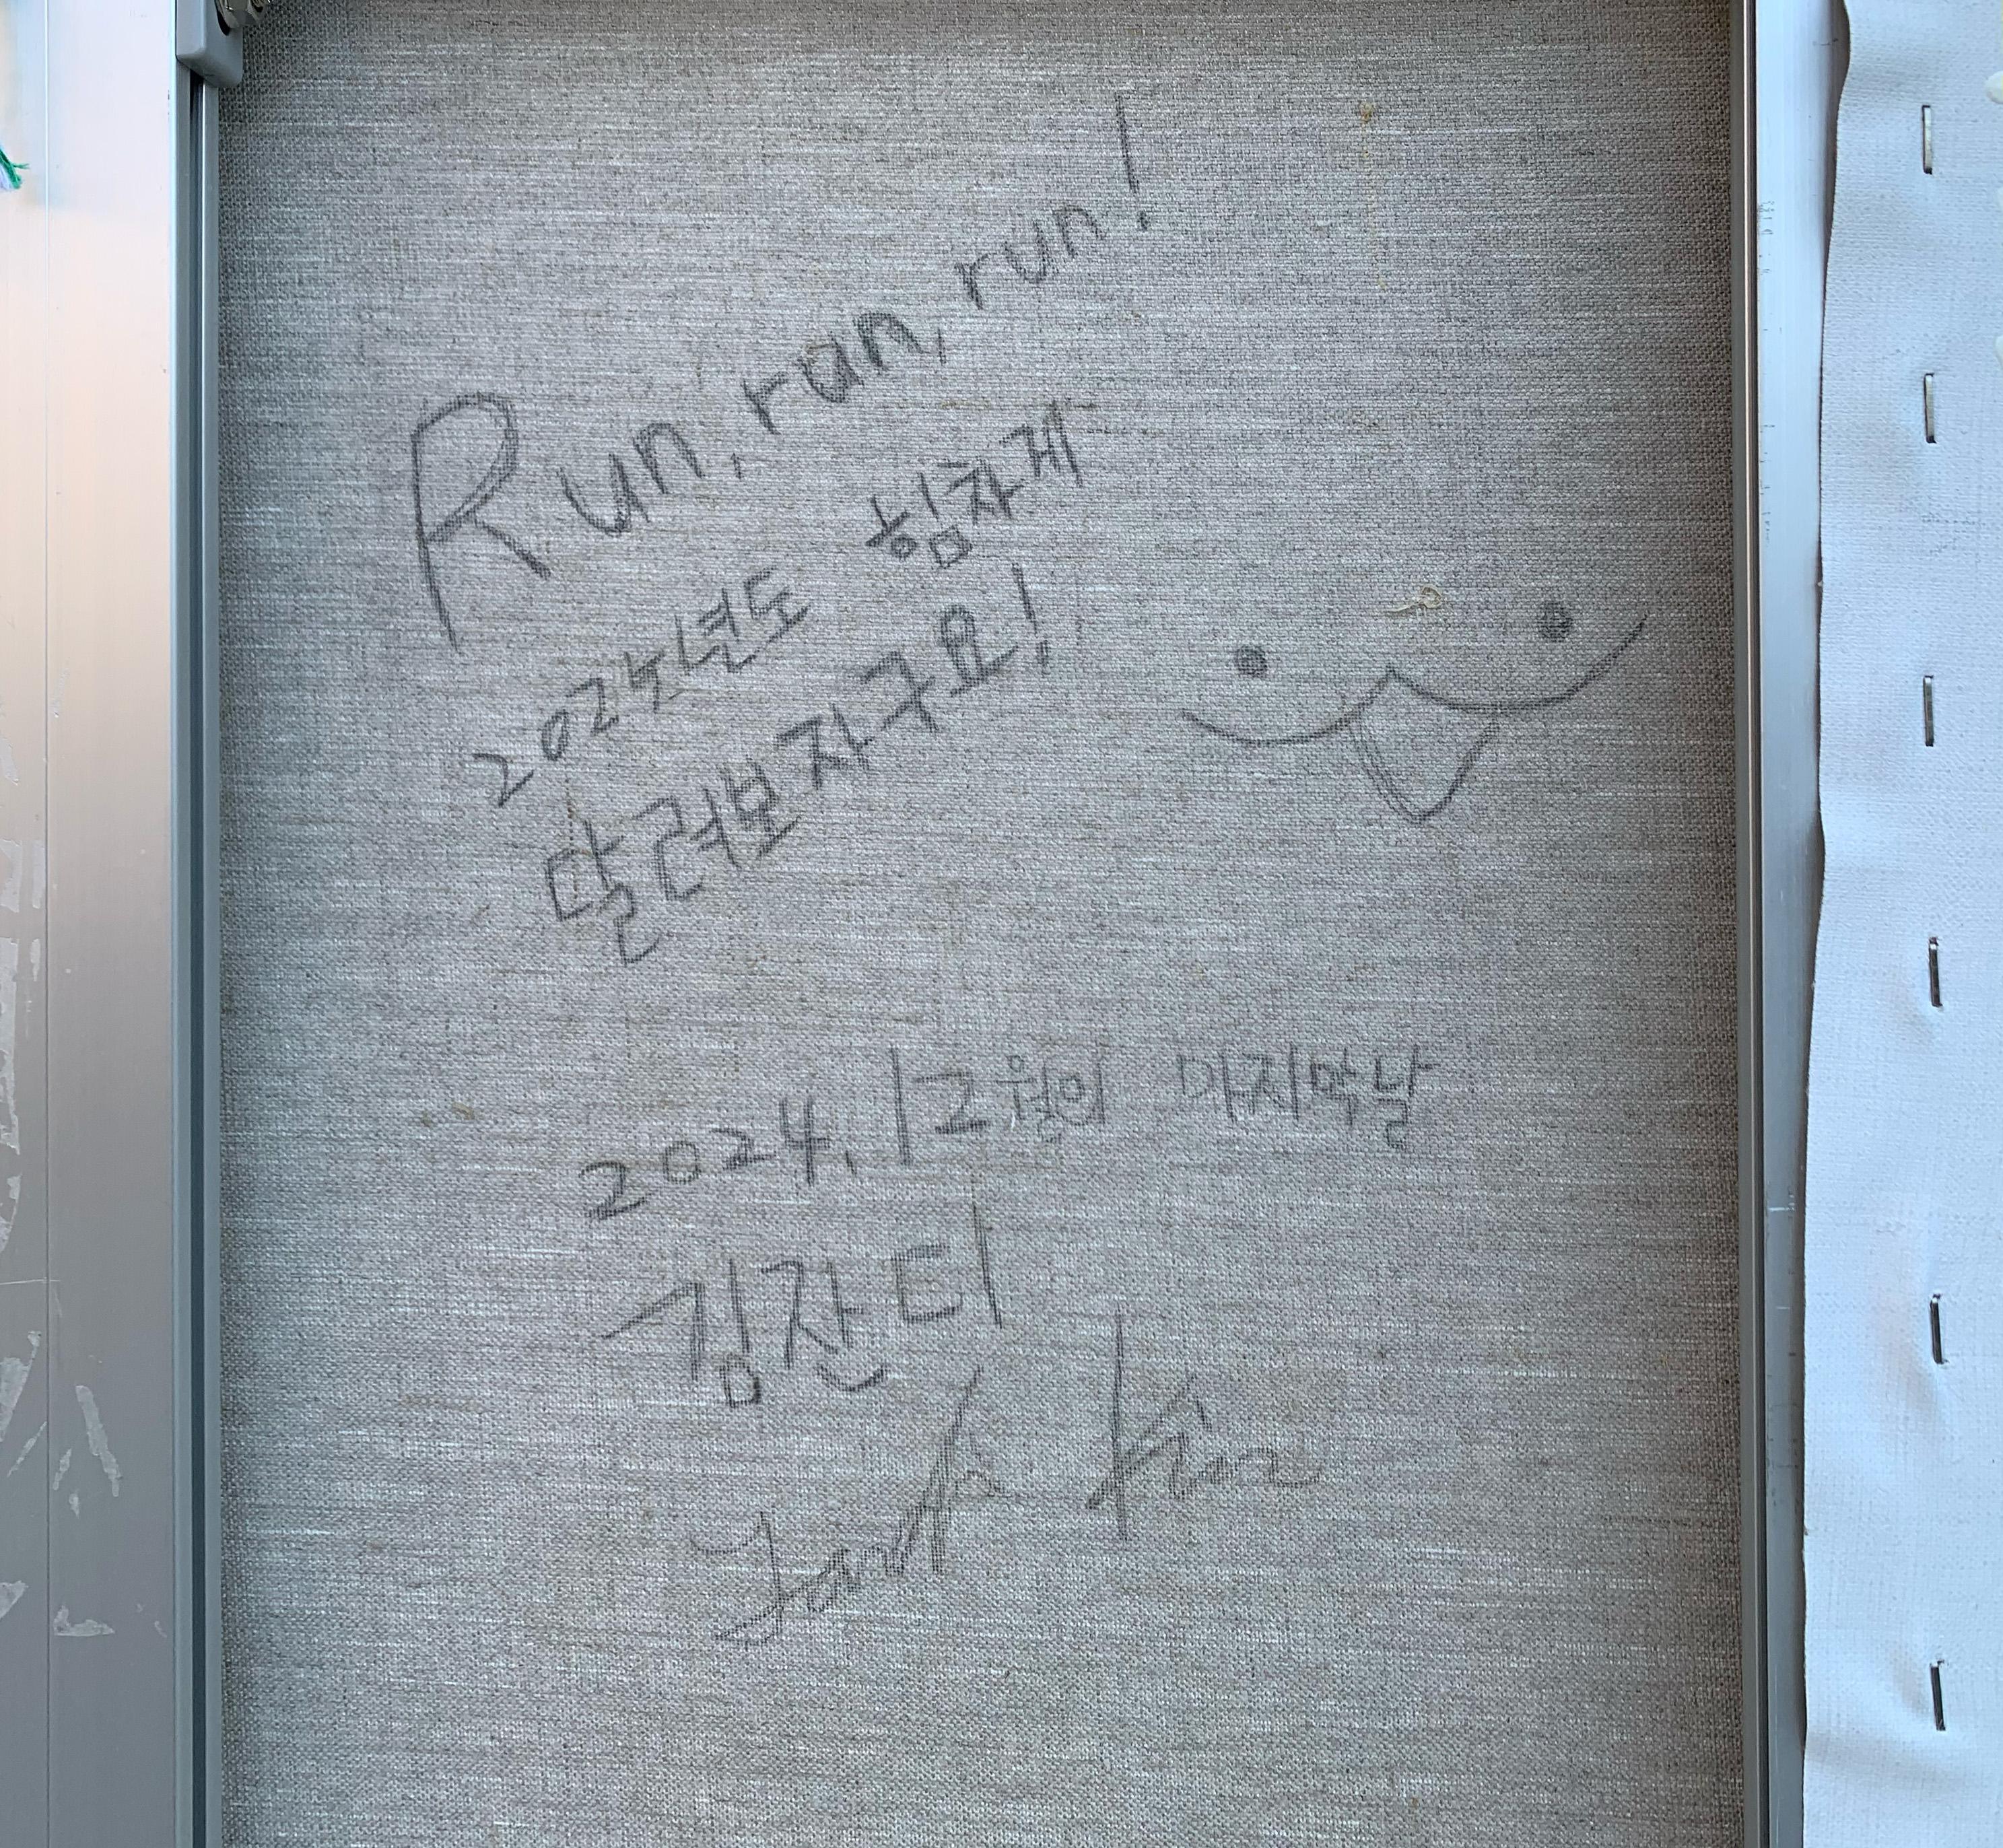 Run, run, run!
2025년도 힘차게
달려보자구요!
2024, 12월의 마지막날
김잔디
Kim